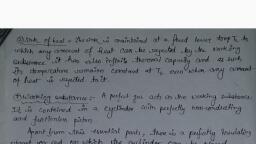 2) Sink of heat :- The sink is maintained at a fixed lower temp T2 to
which any amount of heat can be rejected by the working
substance. It has also infinite thermal capacity and as such
its temperature remains constant at T2 even when any amount
of heat is rejected to it.
3) Working substance :- A perfect gas acts as the working substance.
It is contained in a cylinder with perfectly non-conducting
and frictionless piston.
Apart from this essential parts, there is a perfectly insulating
stand on which the cylinder can be placed